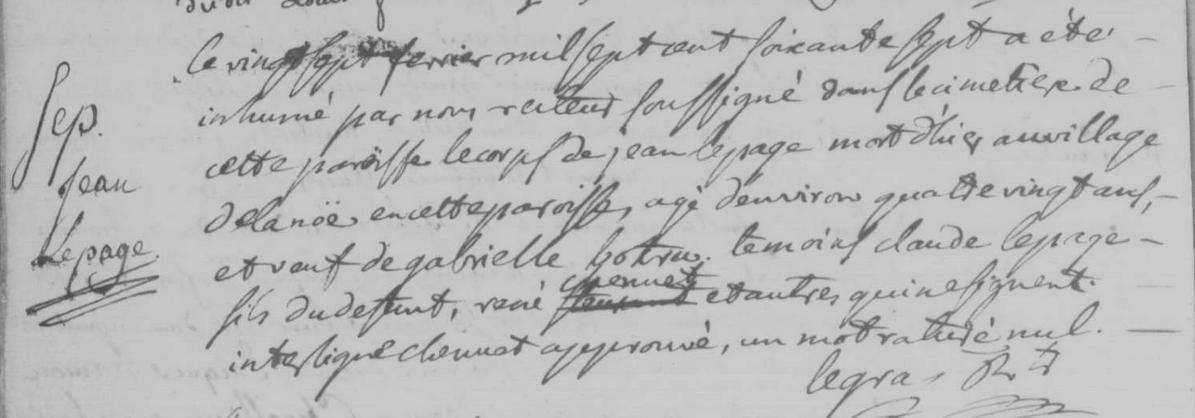 le vingt sept fevrier mil sept cent soixante sept a été
inhumé par nous recteur soussigné dans le cimetiere de
Sep.
cette paroisse le corps de jean lepage mort d'hier au village
Jean
de la nöe en cette paroisse, agé d'environ quatre vingt ans,
Lepage.
et veuf de gabrielle botru. temoins claude lepage
chennet
fils du defunt, rené et autres qui ne signent.
interligne chennet approuvé, un mot raturé nul.
legras Rtr